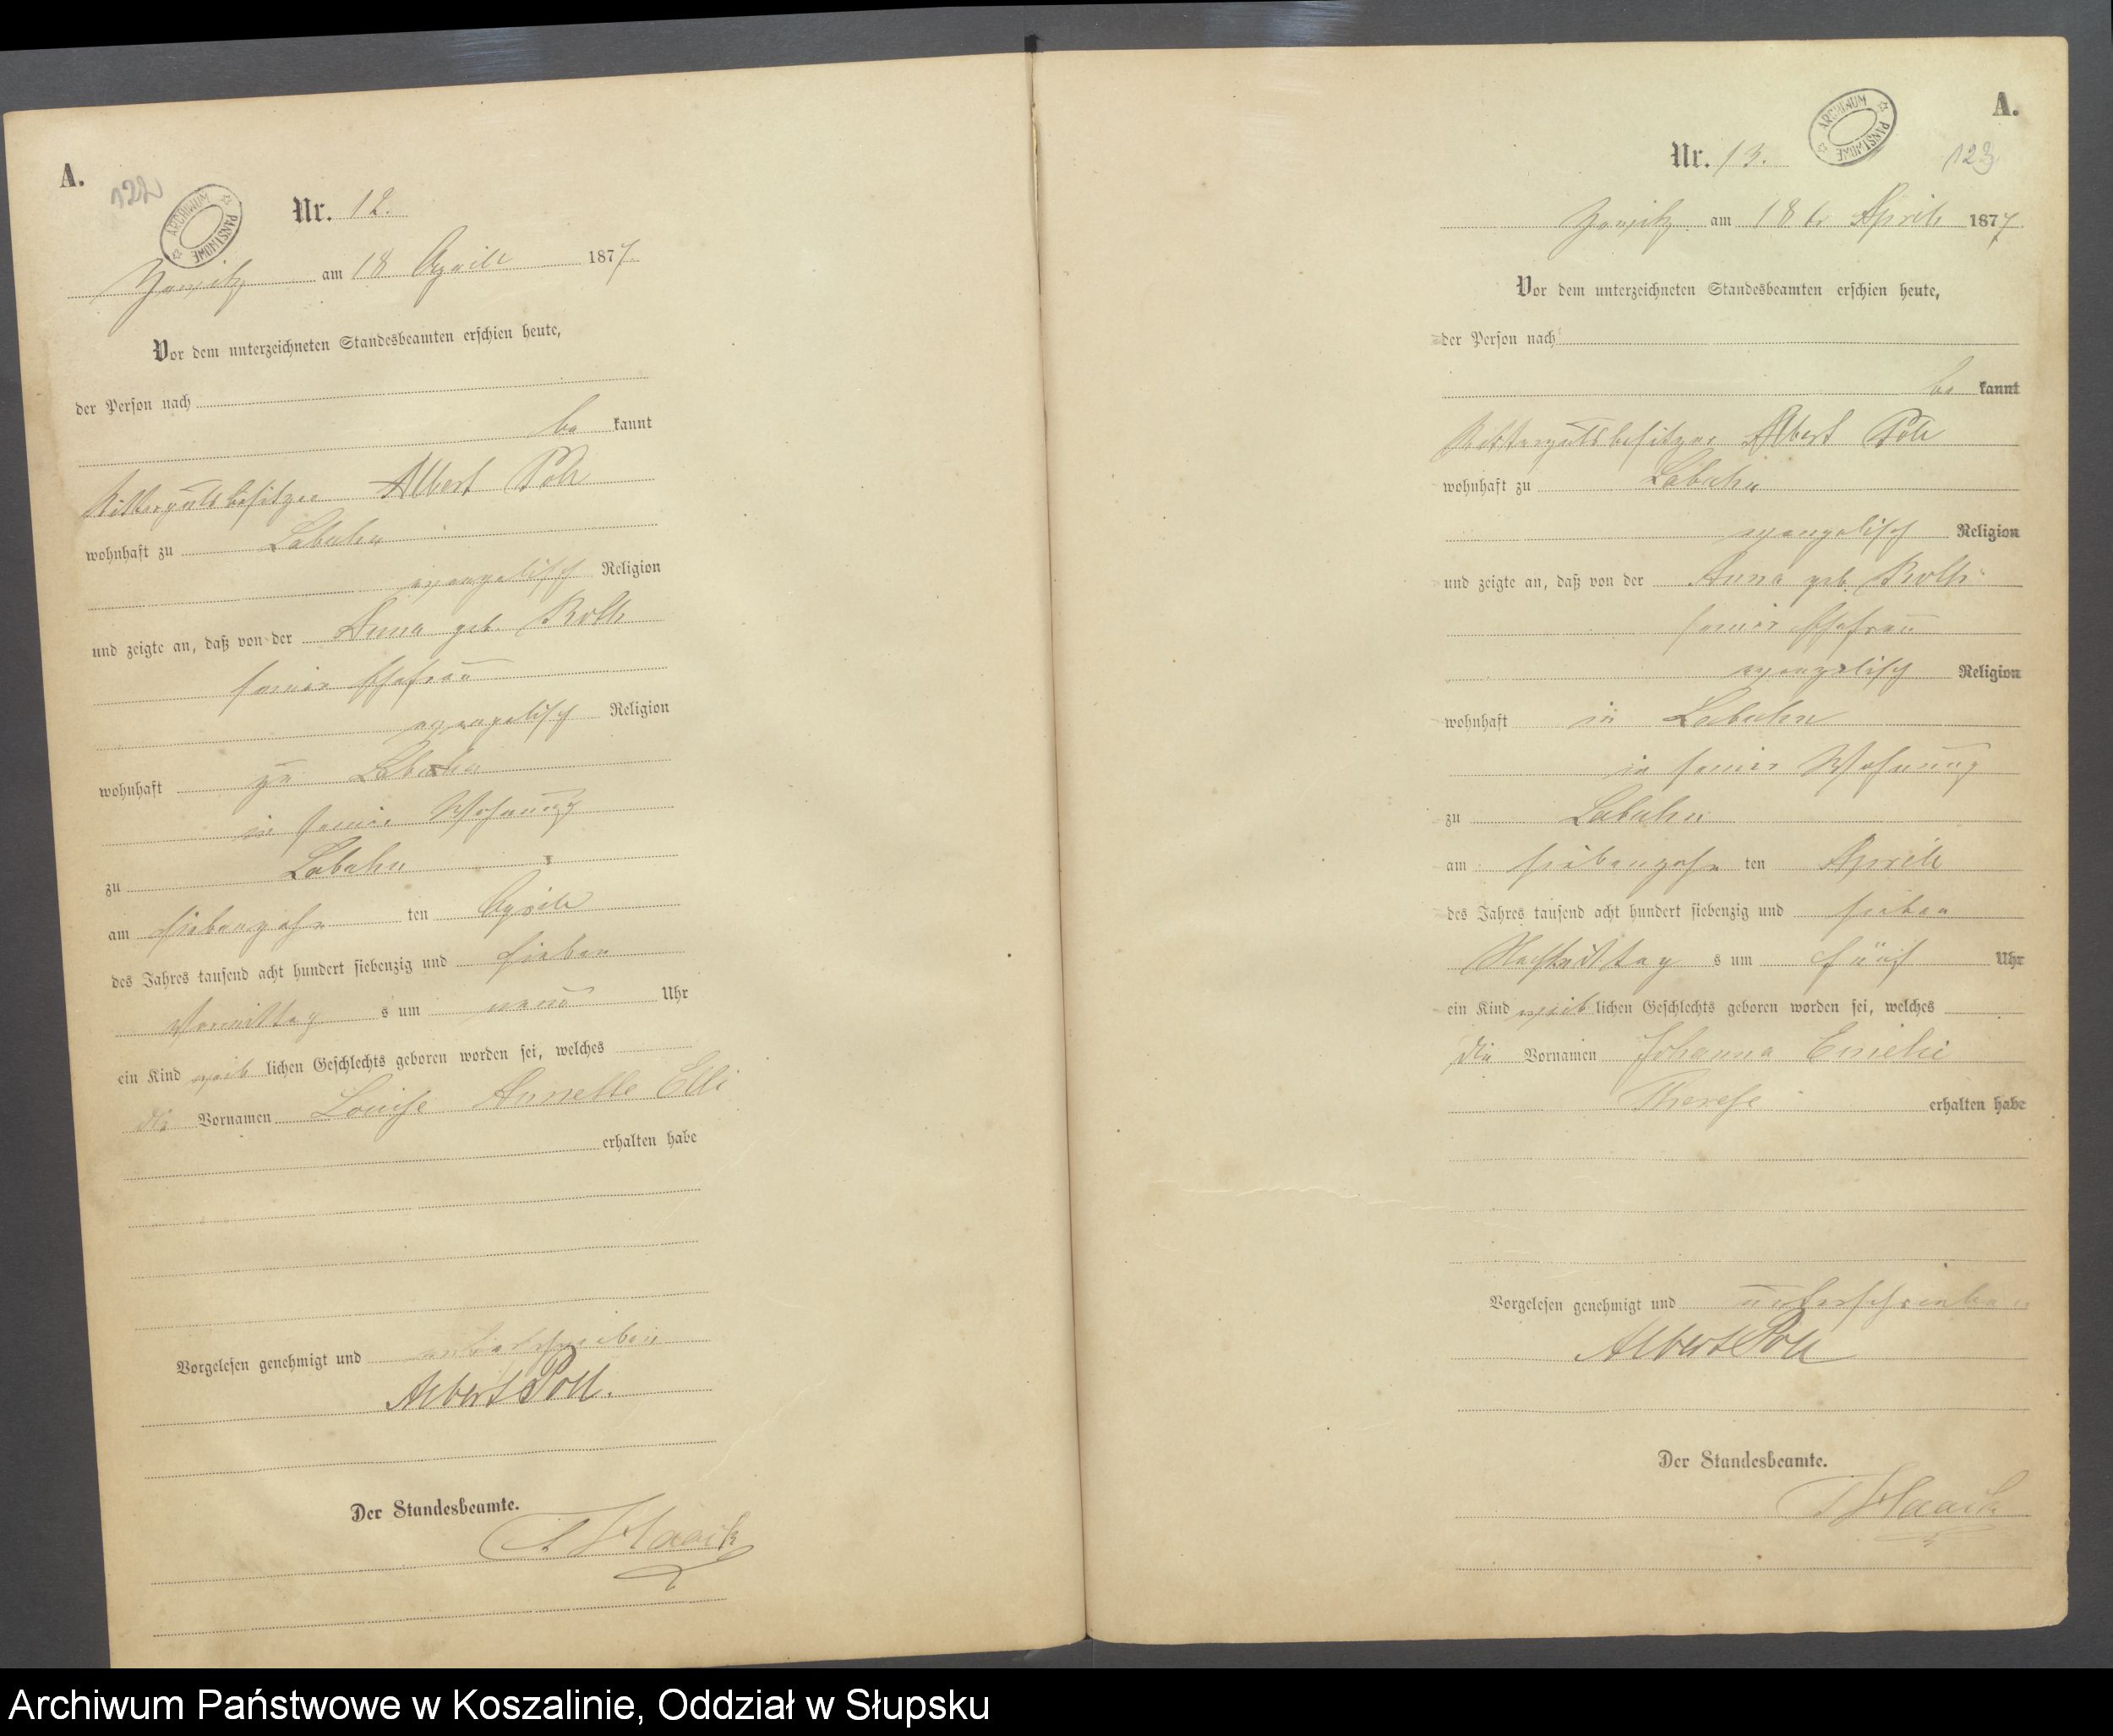 A.
122
ARCHIWUM PAŃSTWOWE
Nr. 12.
Jannewitz am 18 April 1877.
Vor dem unterzeichneten Standesbeamten erschien heute,
der Person nach
be kannt
Rittergutsbesitzer Albert Poll
wohnhaft zu Labuhn
evangelisch Religion
und zeigte an, daß von der Anna geb.
seiner Ehefrau
evangelisch Religion
wohnhaft zu Labuhn
in seiner Wohnung
zu Labuhn
am siebenzehn ten April
des Jahres tausend acht hundert siebenzig und sieben
Vormittag s um neun Uhr
ein Kind weib lichen Geschlechts geboren worden sei, welches
die Vornamen Louise Annette Elli
erhalten habe
Vorgelesen genehmigt und unterschrieben
Albert Poll.
Der Standesbeamte.
Haack
A.
ARCHIWUM PAŃSTWOWE
Nr. 13.
123
am 18 t. April 1877
Vor dem unterzeichneten Standesbeamten erschien heute,
der Person nach
be kannt
Rittergutsbesitzer Albert Poll
wohnhaft zu Labuhn
evangelisch Religion
und zeigte an, daß von der Anna geb.
seiner Ehefrau
evangelisch Religion
wohnhaft in Labuhn
in seiner Wohnung
zu Labuhn
am siebenzehn ten April
des Jahres tausend acht hundert siebenzig und sieben
Nachmittag s um fünf Uhr
ein Kind weib lichen Geschlechts geboren worden sei, welches
die Vornamen Johanna Emelie
Therese erhalten habe
Vorgelesen genehmigt und unterschrieben
Albert Poll
Der Standesbeamte.
Haack
Archiwum Państwowe w Koszalinie, Oddział w Słupsku